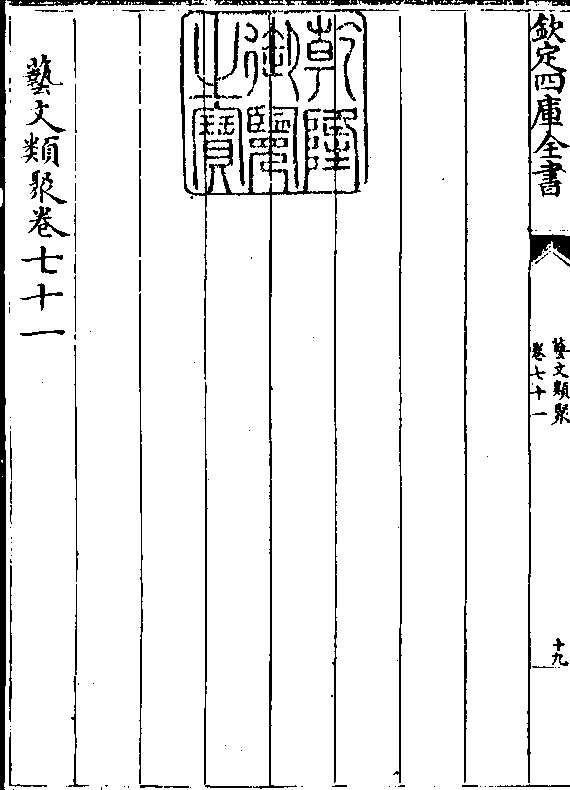 欽定四庫全書
藝文類聚
卷七十一
十九
乾隆
御覽
之寶
藝文類聚卷七十一